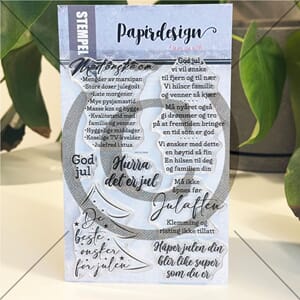 STEMPEL
Papirdesign
Mengder av marsipan
Store doser julegodt
Late morgener
Mye pysjamastid
Masse kos og hygge
Kvalitetstid med
familie og venner
Hyggelige middager
Koselige TV-kvelder
Julefred i stua
God jul
vi vil ønske
til fjern og til nær
Vi hilser familie
og venner så kjær
Må nyåret også
gi drømmer og tro
på at fremtiden bringer
en tid som er god
Vi ønsker med dette
en høytid så fin
En hilsen til deg
og familien din
God
jul
Hurra
det er jul
Må ikke
åpnes før
Julaften
Klemming og
risting ikke tillatt
De
beste
ønsker
for julen
Håper julen din
blir like super
som du er